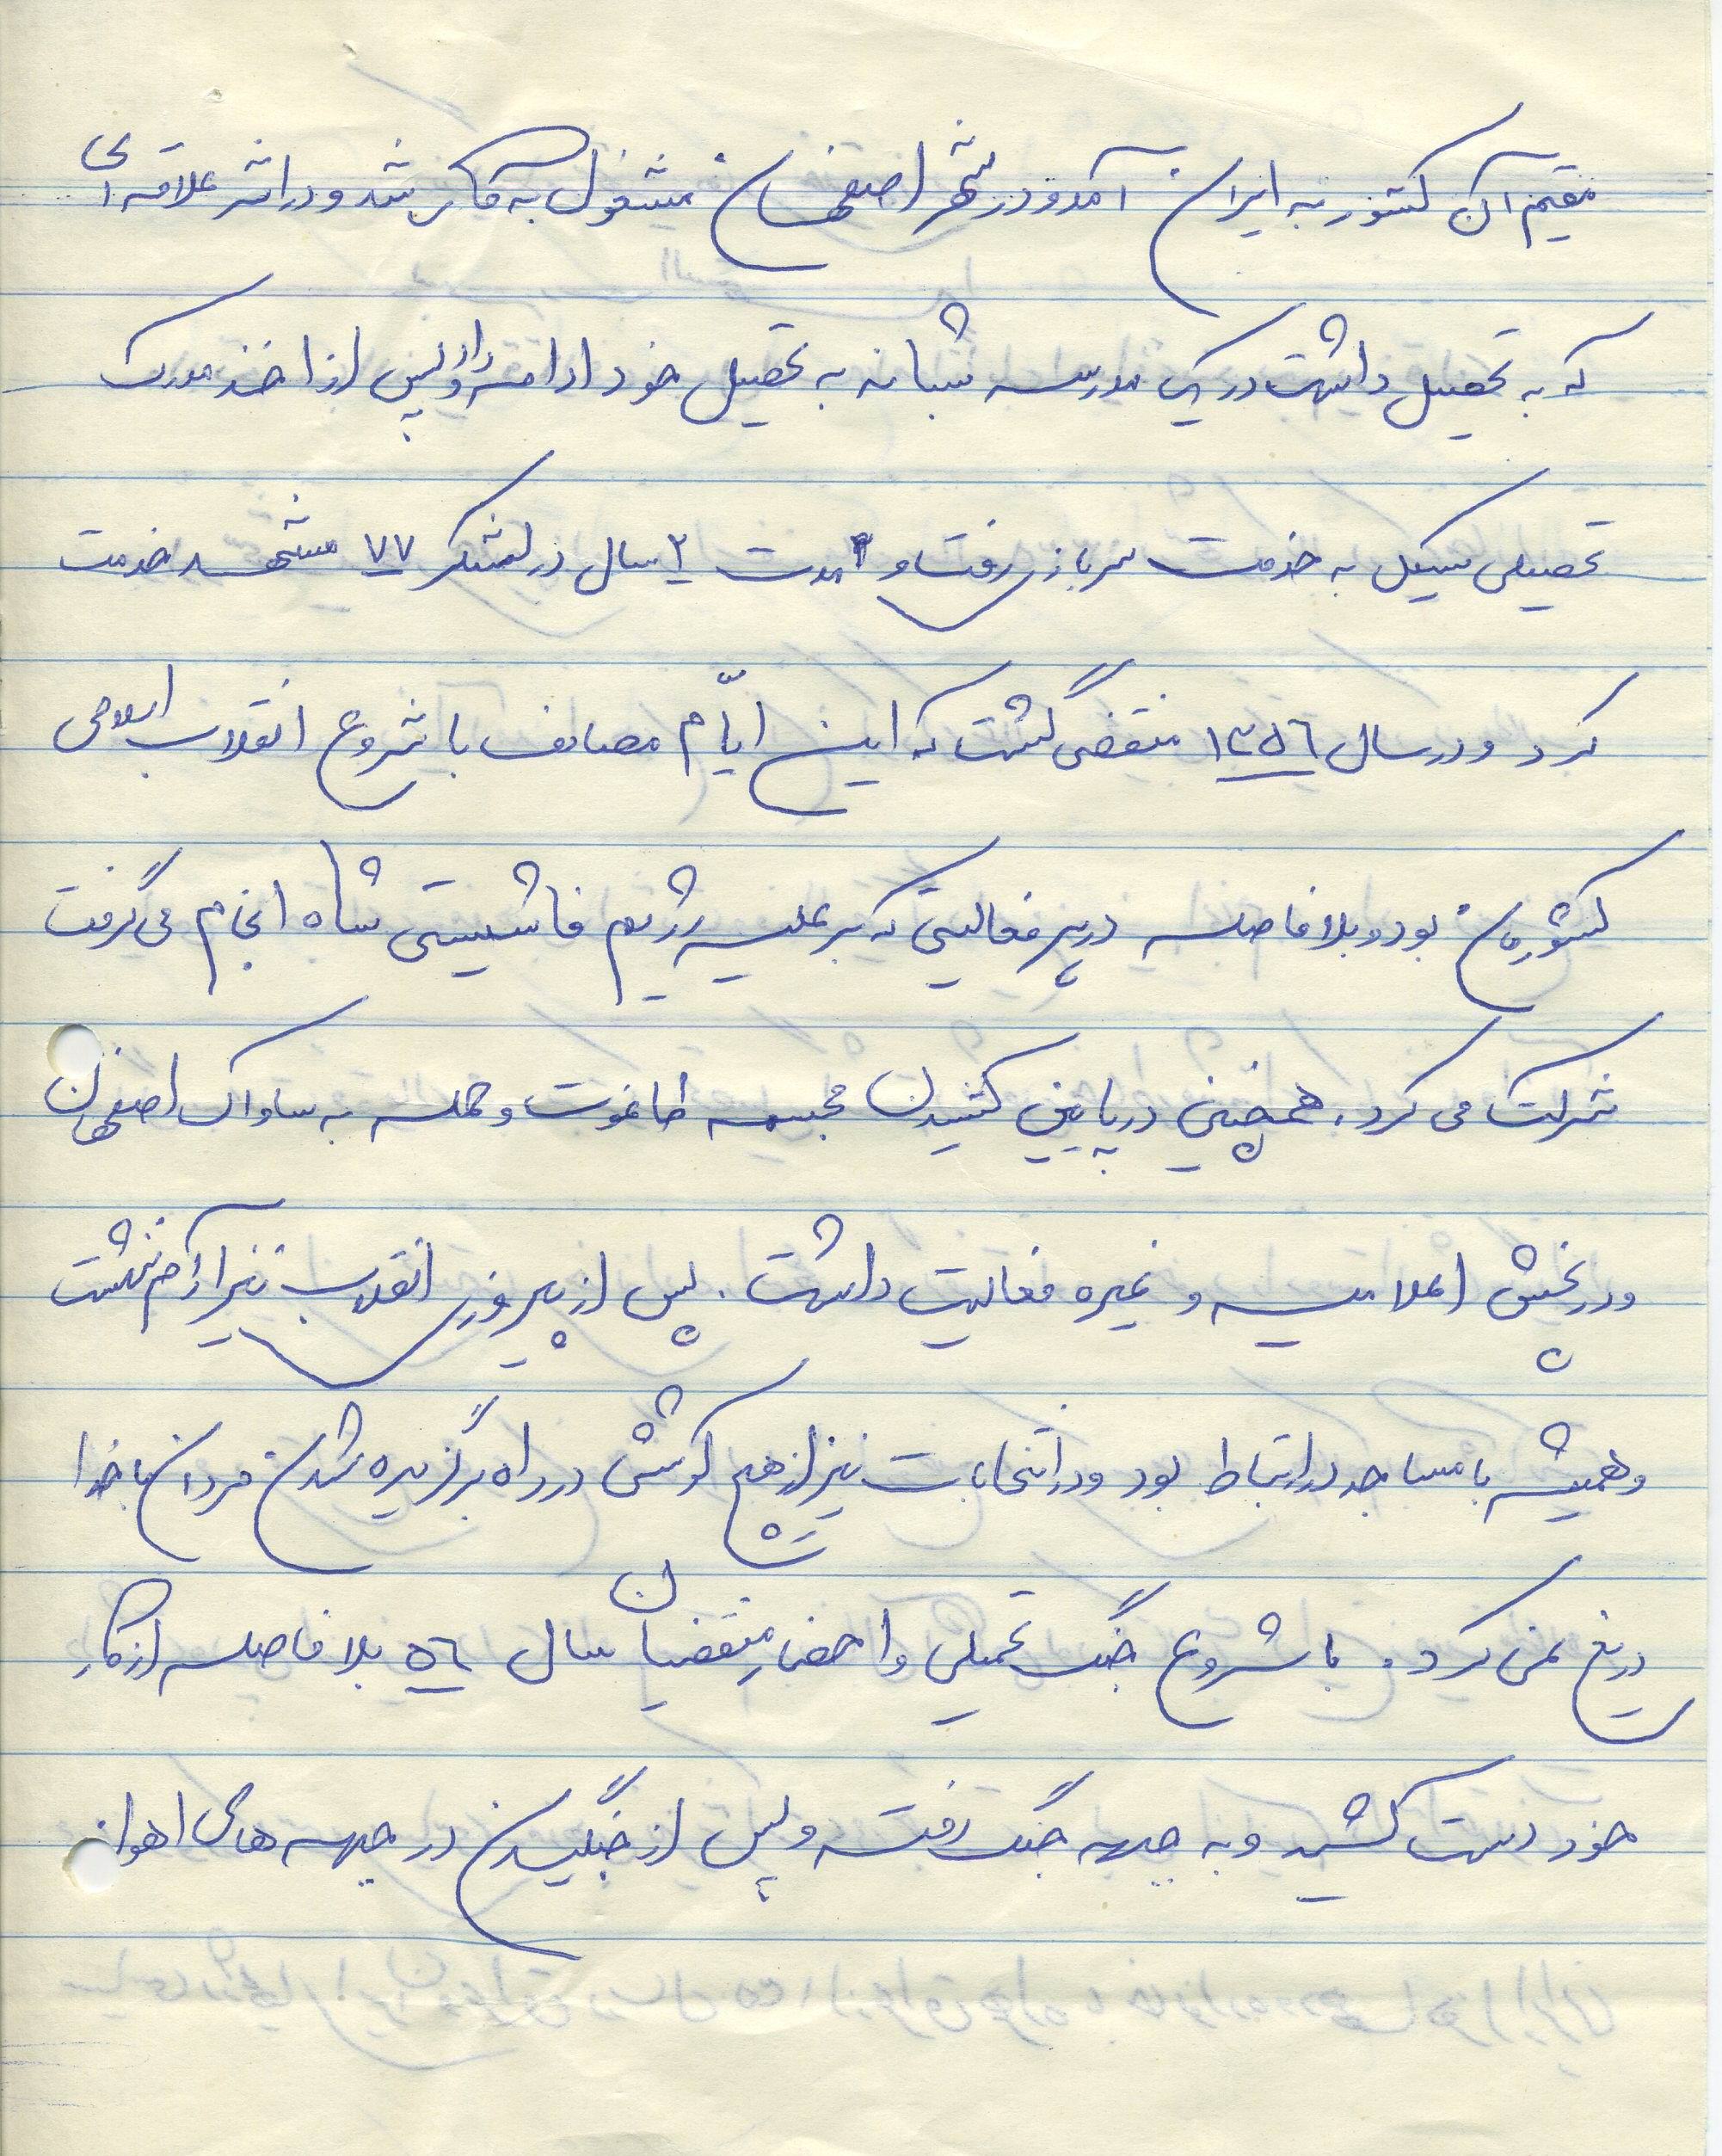 مقیم آن کشور به ایران آمد و در شهر اصفهان مشغول به کار شد و در اثر علاقه ای
که به تحصیل داشت در یک مدرسه شبانه به تحصیل خود ادامه داد و پس از اخذ مدرک
تحصیلی سیکل به خدمت سربازی رفت و مدت ۲ سال در لشکر ۷۷ مشهد خدمت
کرد و در سال ۱۳۵۶ منقضی گشت که این ایّام مصادف با شروع انقلاب اسلامی
کشورمان بود و بلافاصله در هر فعالیتی که بر علیه رژیم فاشیستی شاه انجام می گرفت
شرکت می کرد. همچنین در پایین کشیدن مجسمه طاغوت و حمله به ساواک اصفهان
و در پخش اعلامیه و غیره فعالیت داشت. پس از پیروزی انقلاب نیز آرام ننشست
و همیشه با مساجد در ارتباط بود و در انتخابات نیز از هیچ کوششی در راه برگزیده شدن مردان با خدا
دریغ نمی کرد. با شروع جنگ تحمیلی و احضار منقضیان سال ۵۶ بلافاصله از کار
خود دست کشید و به جبهه جنگ رفته و پس از جنگیدن در جبهه های اهواز